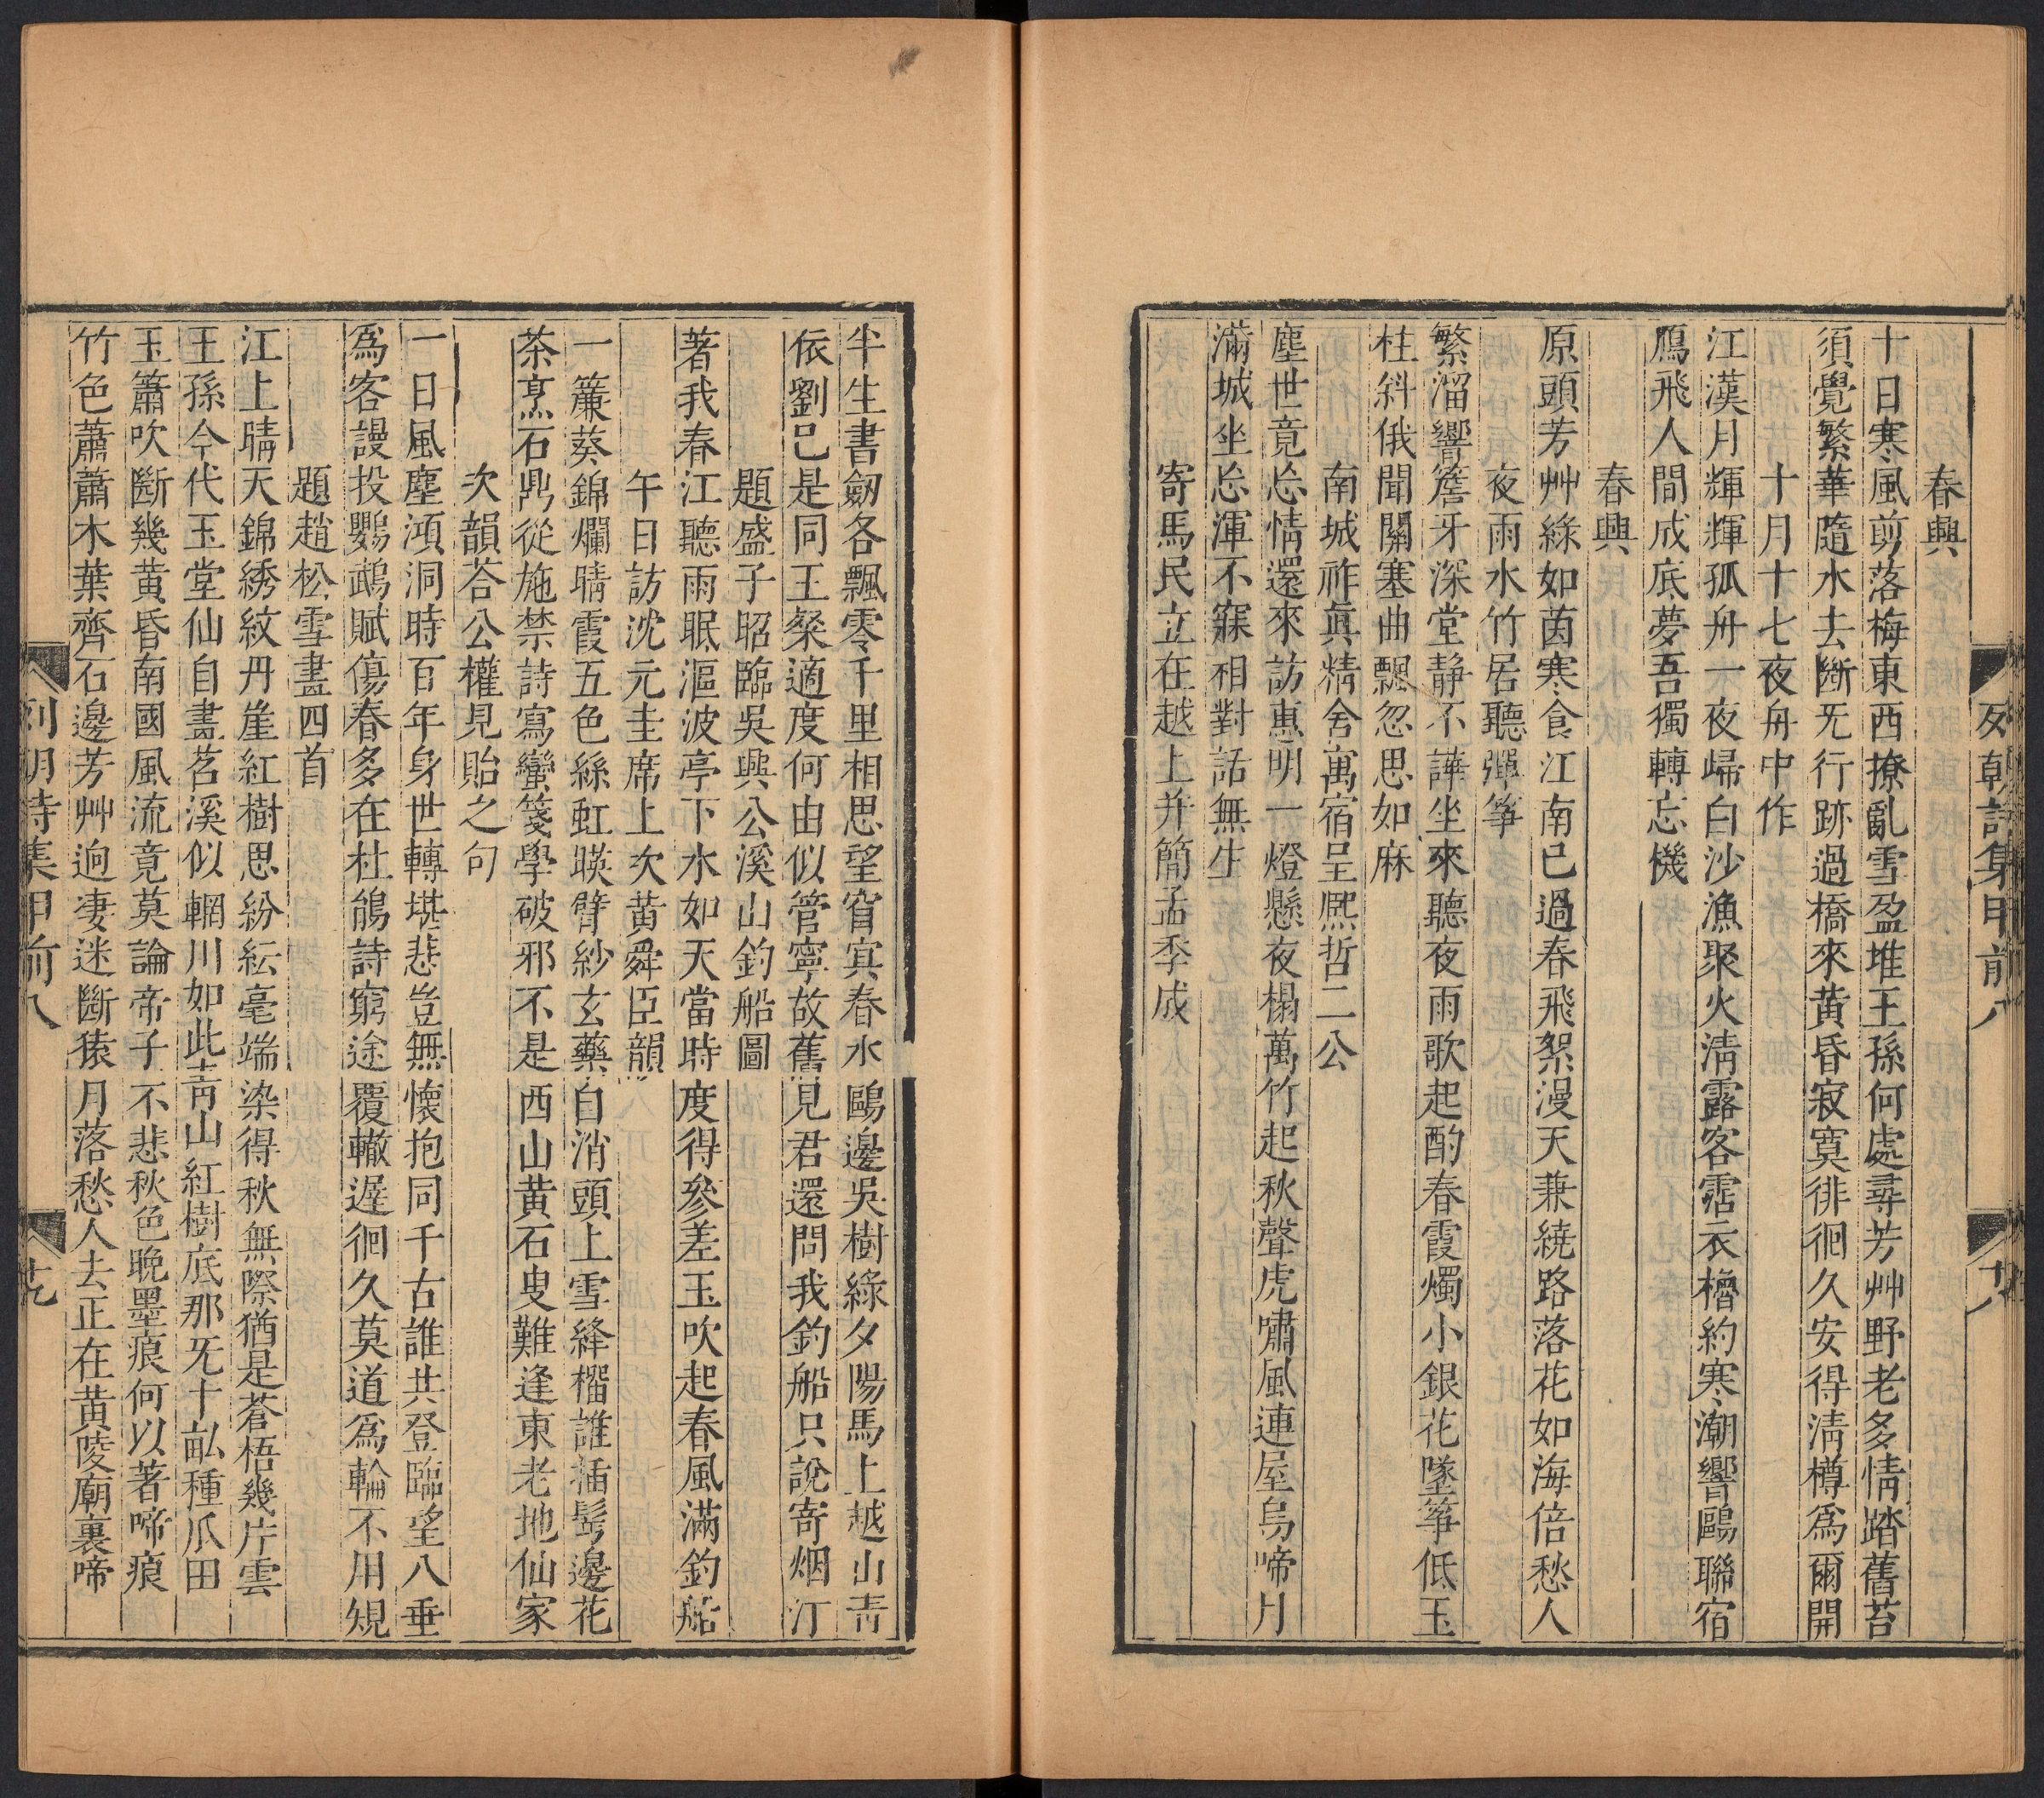 列朝詩集甲前八
十八
春興
十日寒風剪落梅東西撩亂雪盈堆王孫何處尋芳艸野老多情踏舊苔
須覺繁華隨水去斷无行跡過橋來黃昏寂寞徘徊久安得淸樽爲爾開
十月十七夜舟中作
江漢月輝輝孤舟一夜歸白沙漁聚火淸露客霑衣櫓約寒潮響鷗聯宿
鴈飛人間成底夢吾獨轉忘機
春興
原頭芳艸綠如茵寒食江南已過春飛絮漫天兼繞路落花如海倍愁人
夜雨水竹居聽彈箏
繁溜響簷牙深堂靜不譁坐來聽夜雨歌起酌春霞燭小銀花墜箏低玉
柱斜俄聞關塞曲飄忽思如麻
南城祚眞精舍寓宿呈熈哲二公
塵世竟忘情還來訪惠明一燈懸夜榻萬竹起秋聲虎嘯風連屋烏啼月
滿城坐忘渾不寐相對話無生
寄馬民立在越上并簡孟季成
半生書劒各飄零千里相思望窅冥春水鷗邊吳樹綠夕陽馬上越山青
依劉已是同王粲適度何由似管寧故舊見君還問我釣船只說寄烟汀
題盛子昭臨吳興公溪山釣船圖
著我春江聽雨眠漚波亭下水如天當時度得參差玉吹起春風滿釣船
午日訪沈元圭席上次黃舜臣韻
一簾葵錦爛晴霞五色絲虹暎臂紗玄藥自消頭上雪絳榴誰插髩邊花
茶烹石鼎從施禁詩寫蠻箋學破邪不是西山黃石叟難逢東老地仙家
次韻荅公權見貽之句
一日風塵澒洞時百年身世轉堪悲豈無懷抱同千古誰共登臨望八垂
爲客謾投鸚鵡賦傷春多在杜鵑詩窮途覆轍遲徊久莫道爲輪不用規
題趙松雪畫四首
江上晴天錦綉紋丹崖紅樹思紛紜毫端染得秋無際猶是蒼梧幾片雲
王孫今代玉堂仙自畫苕溪似輞川如此青山紅樹底那无十畝種瓜田
玉簫吹斷幾黃昏南國風流竟莫論帝子不悲秋色晚墨痕何以著啼痕
竹色蕭蕭木葉齊石邊芳艸逈凄迷斷猿月落愁人去正在黃陵廟裏啼
列朝詩集甲前八
十九